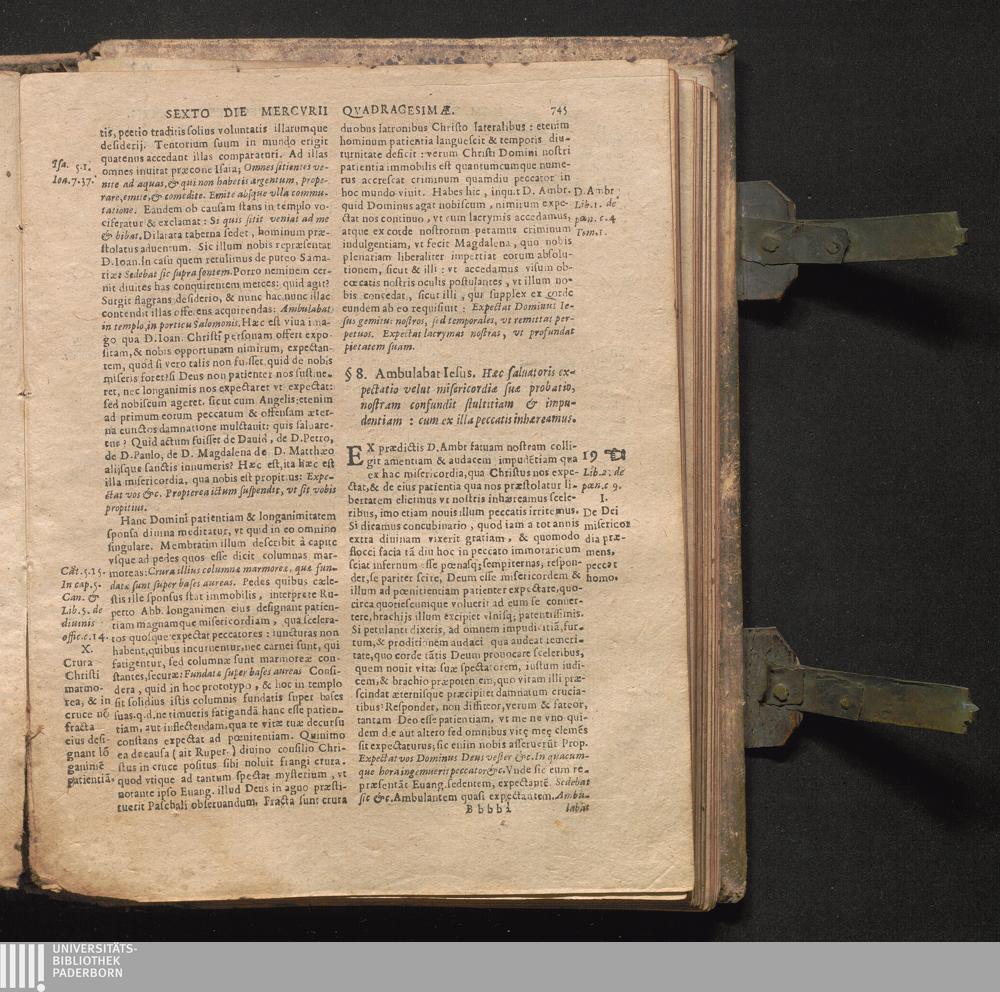 SEXTO DIE MERCVRII QVADRAGESIMÆ. 745
tis, pretio traditis solius voluntatis illarumque
desiderij. Tentorium suum in mundo erigit
quatenus accedant illas comparaturi. Ad illas
omnes inuitat præcone Isaia; Omnes sitientes ve-
nite ad aquas, & qui non habetis argentum, prope-
rate, emite, & comedite. Emite absque vlla commu-
tatione. Eandem ob causam stans in templo vo-
ciferatur & exclamat: Si quis sitit veniat ad me
& bibat. Dilatata taberna sedet, hominum præ-
stolatus aduentum. Sic illum nobis repræsentat
D. Ioan. In casu quem retulimus de puteo Sama-
riæ: Sedebat sic supra fontem. Porro neminem cer-
nit diuites has conquirentem merces: quid agit?
Surgit flagrans desiderio, & nunc hac, nunc illac
contendit illas offerens acquirendas: Ambulabat
in templo, in porticu Salomonis. Hæc est viua ima-
go qua D. Ioan. Christi personam offert expo-
sitam, & nobis opportunam nimirum, expectan-
tem, quod si vero talis non fuisset quid de nobis
miseris foret? si Deus non patienter nos sustine-
ret, nec longanimis nos expectaret vt expectat:
sed nobiscum ageret sicut cum Angelis; etenim
ad primum eorum peccatum & offensam æter-
na cunctos damnatione mulctauit: quis saluare-
tur? Quid actum fuisset de Dauid, de D. Petro,
de D. Paulo, de D. Magdalena de D. Matthæo
alijsque sanctis innumeris? Hæc est, ita hæc est
illa misericordia, qua nobis est propitius: Expe-
ctat vos &c. Propterea ictum suspendit, vt sit vobis
propitius.
Hanc Domini patientiam & longanimitatem
sponsa diuina meditatur, vt quid in eo omnino
singulare. Membratim illum describit à capite
vsque ad pedes quos esse dicit columnas mar-
moreas: Crura illius columnæ marmoreæ, quæ fun-
datæ sunt super bases aureas. Pedes quibus cæle-
stis ille sponsus stat immobilis, interprete Ru-
perto Abb. longanimen eius designant patien-
tiam magnamque misericordiam, qua scelera-
tos quosque expectat peccatores: iuncturas non
habent, quibus incuruentur, nec carnei sunt, qui
fatigentur, sed columnæ sunt marmoreæ con-
stantes, securæ: Fundatæ super bases aureas Consi-
dera, quid in hoc prototypo, & hoc in templo
sit solidius istis columnis fundatis super bases
suas. q.d. ne timueris fatigandā hanc esse patien-
tiam, aut inflectendam, qua te vitæ tuæ decursu
constans expectat ad pœnitentiam. Quinimo
ea de causa (ait Ruper.) diuino consilio Chri-
stus in cruce positus sibi noluit frangi crura.
quod vtique ad tantum spectat mysterium, vt
notante ipso Euang. illud Deus in agno præsti-
tuerit Paschali obseruandum, Fracta sunt crura
Isa. 5.1.
Ioa. 7.37.
Cāt. 5.15.
In cap. 5.
Can. &
Lib. 5. de
diuinis
offic. c. 14.
X.
Crura
Christi
marmo-
rea, & in
cruce nō
fracta
eius desi-
gnant lō
ganimē
patientiā,
duobus latronibus Christo lateralibus: etenim
hominum patientia languescit & temporis diu-
turnitate deficit: verum Christi Domini nostri
patientia immobilis est quantumcumque nume-
rus accrescat criminum quamdiu peccator in
hoc mundo viuit. Habes hic, inquit D. Ambr.
quid Dominus agat nobiscum, nimirum expe-
ctat nos continuo, vt cum lacrymis accedamus,
atque ex corde nostrorum petamus criminum
indulgentiam, vt fecit Magdalena, quo nobis
plenariam liberaliter impertiat eorum absolu-
tionem, sicut & illi: vt accedamus visum ob-
cœcatis nostris oculis postulantes, vt illum no-
bis concedat, sicut illi, qui supplex ex corde
eundem ab eo requisiuit: Expectat Dominus Ie-
sus gemitus nostros, sed temporales, vt remittat per-
petuos. Expectat lacrymas nostras, vt profundat
pietatem suam.
D. Ambr.
Lib. 1. de
pœn. c. 4
Tom. 1.
§ 8. Ambulabat Iesus. Hæc saluatoris ex-
pectatio velut misericordiæ suæ probatio,
nostram confundit stultitiam & impu-
dentiam: cum ex illa peccatis inhæreamus.
EX prædictis D. Ambr fatuam nostram colli-
git amentiam & audacem impudētiam qua
ex hac misericordia, qua Christus nos expe-
ctat, & de eius patientia qua nos præstolatur li-
bertatem elicimus vt nostris inhæreamus scele-
ribus, imo etiam nouis illum peccatis irritemus.
Si dicamus concubinario, quod iam a tot annis
extra diuinam vixerit gratiam, & quomodo
flocci faciat tā diu hoc in peccato immoraticum
sciat infernum esse pœnasq; sempiternas; respon-
der, se pariter scire, Deum esse misericordem &
illum ad pœnitentiam patienter expectare, quo-
circa quotiescumque voluerit ad eum se conuer-
tere, brachijs illum excipiet vlnisq; patentissimis.
Si petulanti dixeris, ad omnem impudicitiā, fur-
tum, & proditionem audaci qua audeat temeri-
tate, quo corde tātis Deum prouocare sceleribus,
quem nouit vitæ suæ spectatorem, iustum iudi-
cem, & brachio præpotentem, quo vitam illi præ-
scindat æternisque præcipitet damnatum crucia-
tibus? Respondet, non diffiteor, verum & fateor,
tantam Deo esse patientiam, vt me ne vno qui-
dem die aut altero sed omnibus vitę meę clemēs
sit expectaturus; sic enim nobis asseruerūt Prop.
Expectat vos Dominus Deus vester &c. In quacum-
que hora ingemuerit peccator &c. Vnde sic eum re-
præsentāt Euang. sedentem, expectantē. Sedebat
sic &c. Ambulantem quasi expectantem. Ambu-
Bbbbb 2 labat
19
Lib. 2. de
pœn. c 9.
I.
De Dei
misericor
dia præ-
mens,
peccat
homo.
UNIVERSITÄTS-
BIBLIOTHEK
PADERBORN